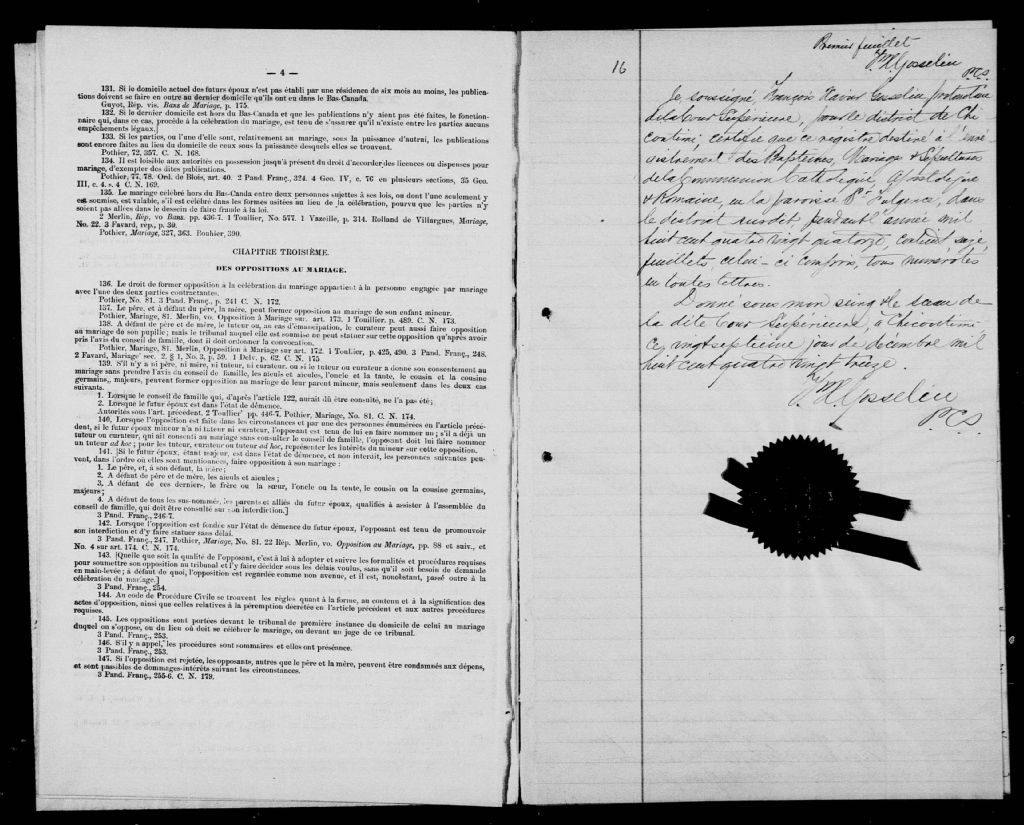 — 4 —
131. Si le domicile actuel des futurs époux n'est pas établi par une résidence de six mois au moins, les publica-
tions doivent se faire en outre au dernier domicile qu'ils ont eu dans le Bas-Canada.
Guyot, Rép. vis. Bans de Mariage, p. 175.
132. Si le dernier domicile est hors du Bas-Canada et que les publications n'y aient pas été faites, le fonction-
naire qui, dans ce cas, procède à la célébration du mariage, est tenu de s'assurer qu'il n'existe entre les parties aucuns
empêchements légaux.]
133. Si les parties, ou l'une d'elle sont, relativement au mariage, sous la puissance d'autrui, les publications
sont encore faites au lieu du domicile de ceux sous la puissance desquels elles se trouvent.
Pothier, 72, 357. C. N. 168.
134. Il est loisible aux autorités en possession jusqu'à présent du droit d'accorder des licences ou dispenses pour
mariage, d'exempter des dites publications.
Pothier, 77, 78. Ord. de Blois, art. 40. 2 Pand. Franç., 324. 4 Geo. IV, c. 76 en plusieurs sections, 35 Geo.
III, c. 4. s. 4 C. N. 169.
135. Le mariage célébré hors du Bas-Canda entre deux personnes sujettes à ses lois, ou dont l'une seulement y
est soumise, est valable, s'il est célébré dans les formes usitées au lieu de la célébration, pourvu que les parties n'y
soient pas allées dans le dessein de faire fraude à la loi.
2 Merlin, Rép, vo Bans. pp. 436-7. 1 Toullier, No. 577. 1 Vazeille, p. 314. Rolland de Villargues, Mariage,
No. 22. 3 Favard, rép., p. 39.
Pothier, Mariage, 327, 363. Bouhier, 390.
CHAPITRE TROISIÈME.
DES OPPOSITIONS AU MARIAGE.
136. Le droit de former opposition à la célébration du mariage appartient à la personne engagée par mariage
avec l'une des deux parties contractantes.
Pothier, No. 81. 3 Pand. Franç., p. 241 C. N. 172.
137. Le père, et à défaut du père, la mère, peut former opposition au mariage de son enfant mineur.
Pothier, Mariage, 81. Merlin, vo. Opposition à Mariage sur. art. 173. 1 Touillier, p. 489. C. N. 173.
138. A défaut de père et de mère, le tuteur ou, as cas d'émancipation, le curateur peut aussi faire opposition
au mariage de son pupille; mais le tribunal auquel elle est soumise ne peut statuer sur cette opposition qu'après avoir
pris l'avis du conseil de famille, dont il doit ordonner la convocation.
Pothier, Mariage, 81. Merlin, Opposition à Mariage sur art. 172. 1 Toullier, p. 425, 490. 3 Pand. Franç., 248.
2 Favard, Mariage sec. 2. § 1, No. 3, p. 59. 1 Delv. p. 62. C. N. 175
139. S'il n'y a ni père, ni mère, ni tuteur, ni curateur, ou si le tuteur ou curateur a donné son consentement au
mariage sans prendre l'avis du conseil de famille, les aïeuls et aïeules, l'oncle et la tante, le cousin et la cousine
germains, majeurs, peuvent former opposition au mariage de leur parent mineur, mais seulement dans les deux cas
suivants.
1. Lorsque le conseil de famille qui, d'après l'article 122, aurait dû être consulté, ne l'a pas été;
2. Lorsque le futur époux est dans l'état de démence.
Autorités sous l'art. précédent. 2 Toullier pp. 446-7. Pothier, Mariage, No. 81. C. N. 174.
140. Lorsque l'opposition est faite dans les circonstances et par une des personnes énumérées en l'article précé-
dent, si le futur époux mineur n'a ni tuteur ni curateur, l'opposant est tenu de lui en faire nommer un; s'il a déjà un
tuteur ou curateur, qui ait consenti au mariage sans consulter le conseil de famille, l'opposant doit lui faire nommer
un tuteur ad hoc; pour les tuteur, curateur ou tuteur ad hoc, représenter les intérêts du mineur sur cette opposition.
141. [Si le futur époux, étant majeur, est dans l'état de démence, et non interdit, les personnes suivantes peu-
vent, dans l'ordre où elles sont mentionnées, faire opposition à son mariage:
1. Le père, et, à son défaut, la mère;
2. A défaut de père et de mère, les aïeuls et aïeules;
3, A défaut de ces derniers, le frère ou la sœur, l'oncle ou la tente, le cousin ou la cousine germains,
majeurs;
4. A défaut de tous les sus-nommés, les parents et alliés du futur époux, qualifiés à assister à l'assemblée du
conseil de famille, qui doit être consulté sur son interdiction.]
3 Pand. Franç., 246-7.
142. Lorsque l'opposition est fondée sur l'état de démence du futur époux, l'opposant est tenu de promouvoir
son interdiction et d'y faire statuer sans délai.
3 Pand. Franç., 247. Pothier, Mariage, No. 81. 22 Rép. Merlin, vo. Opposition au Mariage, pp. 88 et suiv., et
No. 4 sur art. 174. C. N. 174.
143. [Quelle que soit la qualité de l'opposant, c'est à lui à adopter et suivre les formalités et procédures requises
pour soumettre son opposition au tribunal et l'y faire décider sous les délais voulus, sans qu'il soit besoin de demande
en main-levée; à défaut de quoi, l'opposition est regardée comme non avenue, et il est, nonobstant, passé outre à la
célébration du mariage.]
3 Pand. Franç., 254.
144. Au code de Procédure Civile se trouvent les règles quant à la forme, au contenu et à la signification des
actes d'opposition, ainsi que celles relatives à la péremption décrétée en l'article précédent et aux autres procédures
requises.
145. Les oppositions sont portées devant le tribunal de première instance du domicile de celui au mariage
duquel on s'oppose, ou du lieu où doit se célébrer le mariage, ou devant un juge de ce tribunal.
3 Pand. Franç., 253.
146. S'il y a appel, les procédures sont sommaires et elles ont présénnce.
3 Pand. Franç., 253.
147. Si l'opposition est rejetée, les opposants, autres que le père et la mère, peuvent être condamnés aux dépens,
et sont passibles de dommages-intérêts suivant les circonstances.
3 Pand. Franç., 255-6. C. N. 179.
16
Premier feuillet
F. X. Gosselin
P. C. S.
Je soussigné, François Xavier Gosselin protonotaire
de la Cour Supérieure, pour le district de Chi
coutimi, certifie que ce registre destiné à l'enre
gistrement des Baptêmes, Mariages & Sépultures
de la Communion Catholique, Apostolique
& Romaine, en la paroisse St Fulgence, dans
le district susdit, pendant l'année mil
huit cent quatre vingt quatorze, contient seize
feuillets, celui-ci compris, tous numérotés
en toutes lettres.
Donné sous mon seing & le sceau de
la dite Cour Supérieure, à Chicoutimi,
ce vingt septième jour de décembre mil
huit cent quatre vingt treize.
F. X. Gosselin
P. C. S.